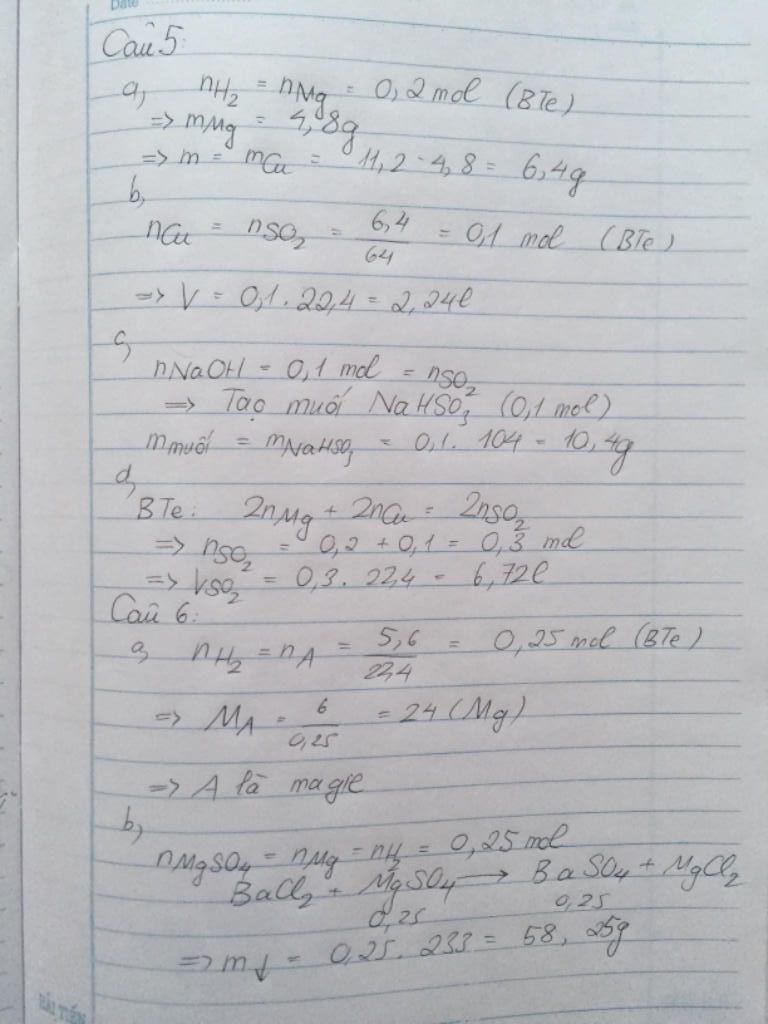 Date
Câu 5:
a, nH₂ = nMg = 0,2 mol (BTe)
=> mMg = 4,8g
=> m = mCu = 11,2 - 4,8 = 6,4g
b,
nCu = nSO₂ = 6,4/64 = 0,1 mol (BTe)
=> V = 0,1 . 22,4 = 2,24l
c,
nNaOH = 0,1 mol = nSO₂
=> Tạo muối NaHSO₃ (0,1 mol)
mmuối = mNaHSO₃ = 0,1 . 104 = 10,4g
d,
BTe: 2nMg + 2nCu = 2nSO₂
=> nSO₂ = 0,2 + 0,1 = 0,3 mol
=> VSO₂ = 0,3 . 22,4 = 6,72l
Câu 6:
a, nH₂ = nA = 5,6/22,4 = 0,25 mol (BTe)
=> MA = 6/0,25 = 24 (Mg)
=> A là magie
b,
nMgSO₄ = nMg = nH₂ = 0,25 mol
BaCl₂ + MgSO₄ → BaSO₄ + MgCl₂
0,25 0,25
=> m↓ = 0,25 . 233 = 58,25g
HẢI TIẾN